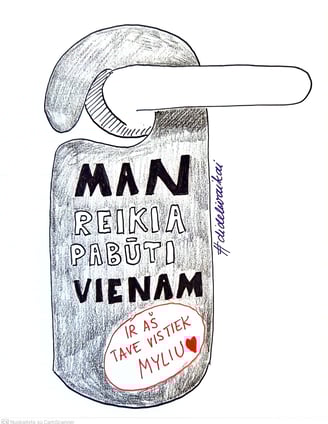 MAN
REIKIA
PABŪTI
VIENAM
IR AŠ
TAVE VISTIEK
MYLIU
#didelivaikai
Nuskaityta su CamScanner